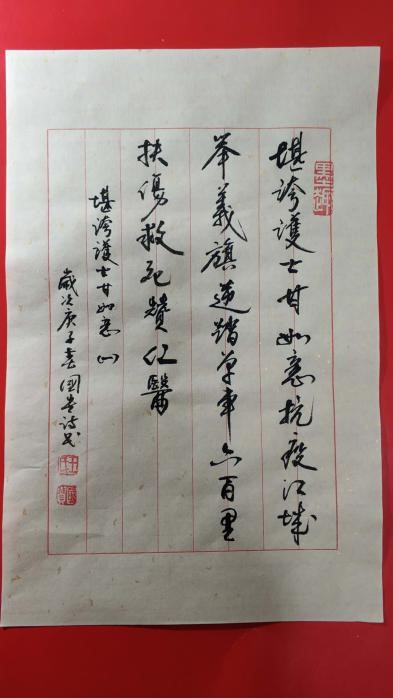 堪誇護士甘如意抗疫江城
举義旗逆踏單車六百里
扶傷救死贊仁醫
堪誇護士甘如意
歲次庚子
國